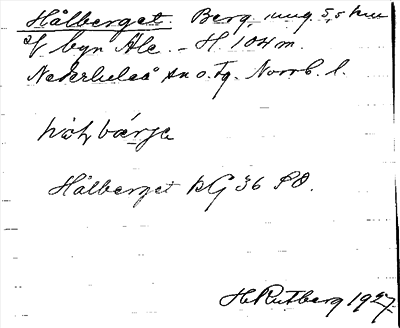 Hålberget. Berg, ung 5,5 km
V byn Ale. - H. 104 m.
Nederluleå sn o. tg. Norrb. l.
Hålberget KG 36 SO.
H Rutberg 1927